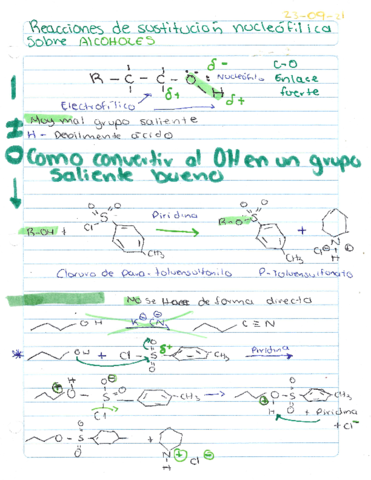 23-09-21
Reacciones de sustitución nucleófilica
sobre ALCOHOLES
R - C - C - O δ- : Nucleófilo
δ+ H δ+
C-O
Enlace
fuerte
Electrofílico
Muy mal grupo saliente
H - Debilmente ácido
Como convertir al OH en un grupo
saliente bueno
R-OH + Cl S O O CH3 Piridina R-O-S O O CH3 + N H Cl⊖
Cloruro de para-toluensulfonilo P-Toluensulfonato
No se Hace de forma directa
OH K⊕ ⊖CN C≡N
* OH + Cl - S O O δ+ CH3 Piridina
⊕ O H S O⊖ O Cl CH3 ⊕ O H S O O CH3
+ Piridina
+ Cl⊖
O - S O O + N H ⊕ Cl ⊖